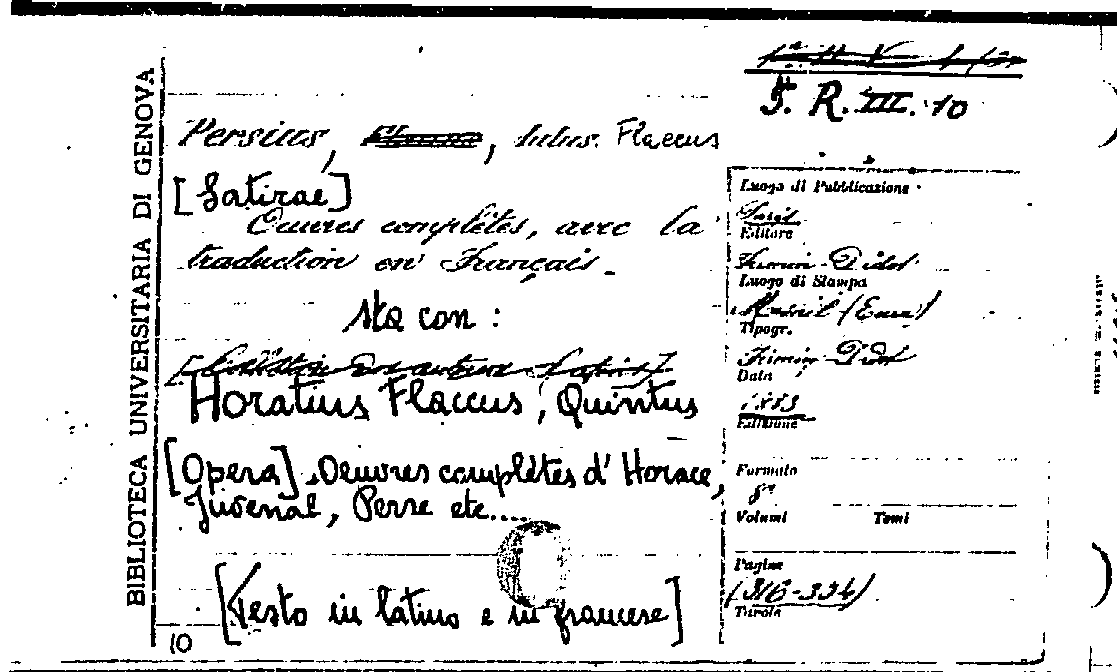 BIBLIOTECA UNIVERSITARIA DI GENOVA
5. R. III. 10
Persius, Flaccus, Iulus. Flaccus
[Satirae]
Oeuvres complètes, avec la
traduction en Français.
Sta con:
Horatius Flaccus, Quintus
[Opera]. Oeuvres complètes d' Horace,
Juvenal, Perse etc....
[Testo in latino e in francese]
10
Luogo di Pubblicazione
Paris
Editore
Firmin-Didot
Luogo di Stampa
Mesnil (Eure)
Tipogr.
Firmin-Didot
Data
1883
Edizione
Formato
8°
Volumi Tomi
Pagine
(316-334)
Tavole